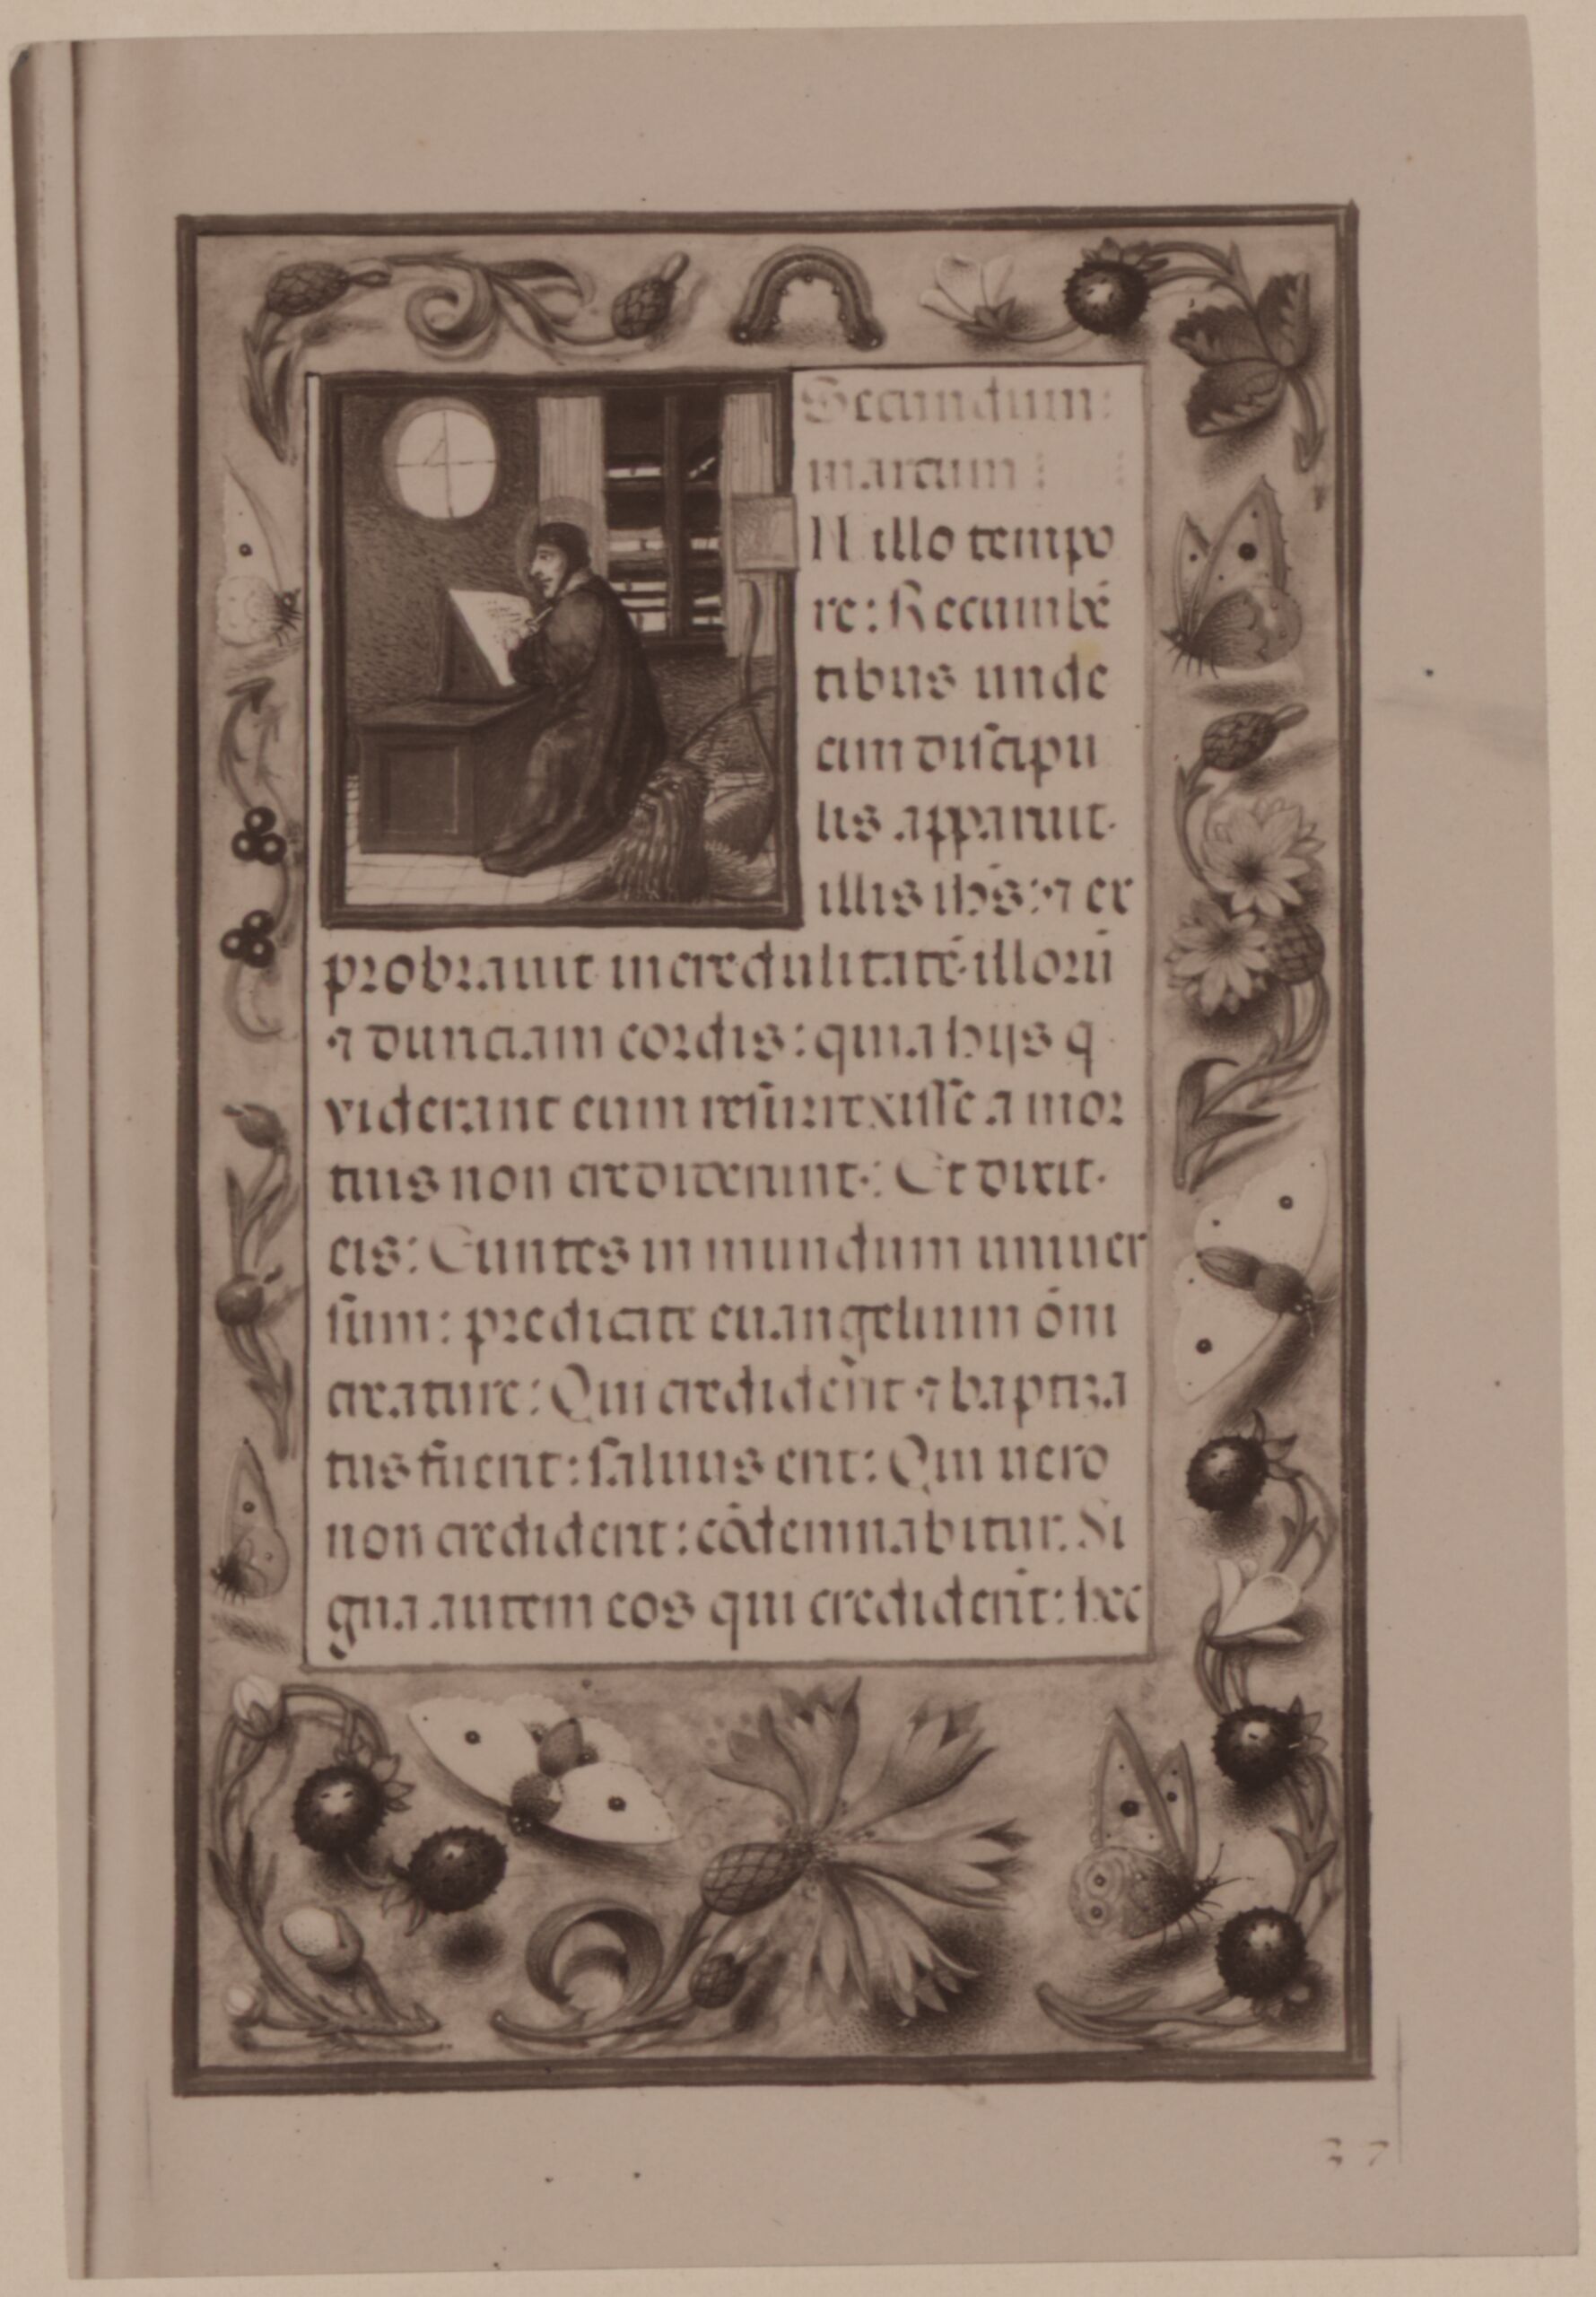 Secundum
marcum
N illo tempo
re: Recumbē
tibus unde
cim discipu
lis apparuit
illis ihs: ⁊ ex
probrauit incredulitatē illorū
⁊ duriciam cordis: quia hijs q
viderant eum resurrexisse a mor
tuis non crediderunt: Et dixit
eis: Euntes in mundum uniuer
sum: predicate euangelium om̄i
creature: Qui crediderīt ⁊ baptiza
tus fuerit: saluus erit: Qui uero
non crediderit: cōdemnabitur. Si
gna autem eos qui crediderīt: hec
37